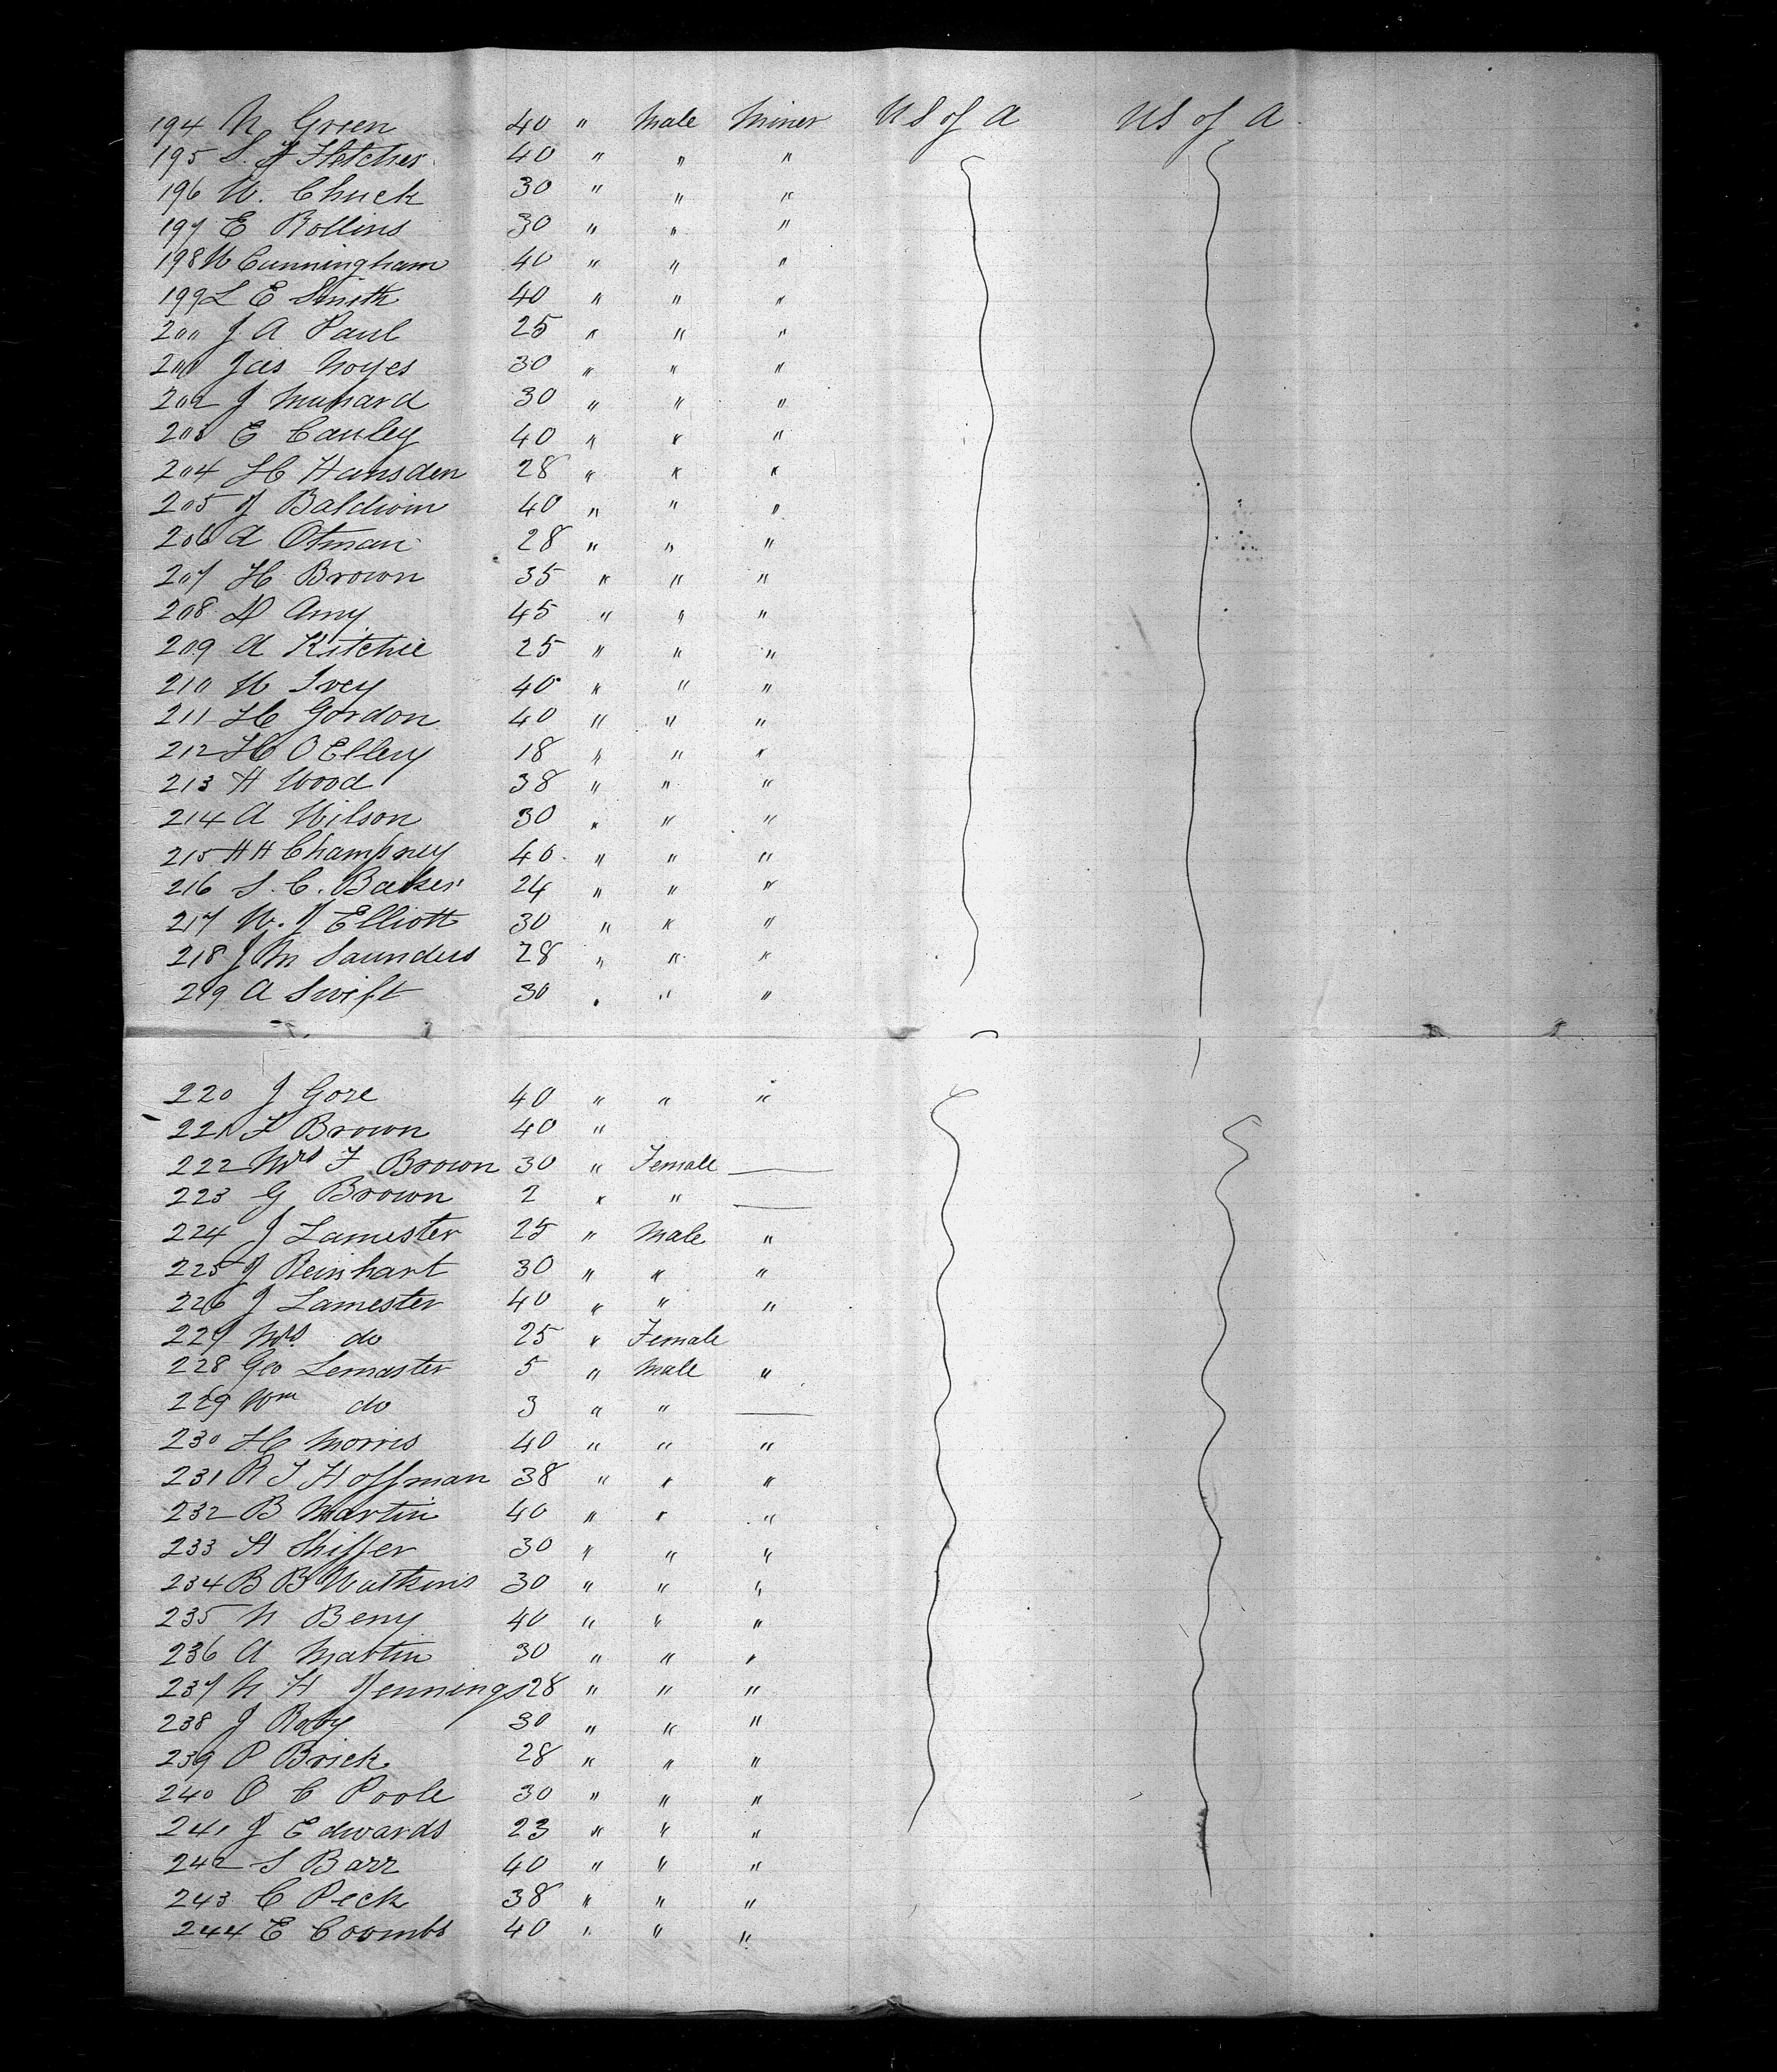 194 N Green 40 " Male Miner US of A US of A.
195 S. J Fletcher. 40 " " "
196 W. Chuck 30 " " "
197 E Rollins 30 " " "
198 W Cunningham 40 " " "
199 L E Smith 40 " " "
200 J. A Paul 25 " " "
201 Jas Noyes 30 " " "
202 J 30 " " "
203 E Cauley 40 " " "
204 H Hansden 28 " " "
205 J Baldwin 40 " " "
206 A Otman 28 " " "
207 H Brown 35 " " "
208 D Amy 45 " " "
209 A Kitchie 25 " " "
210 W Ivey 40 " " "
211 H Gordon 40 " " "
212 H O Ellery 18 " " "
213 H Wood 38 " " "
214 A Wilson 30 " " "
215 H H Champney 40. " " "
216 S. C. Baker 24 " " "
217 W. J Elliott 30 " " "
218 J M Saunders 28 " " "
219 A Swift 30 " " "
220 J Gore 40 " " "
221 F Brown 40 "
222 Mrs F Brown 30 " Female —
223 G Brown 2 " " —
224 J Lamester 25 " Male "
225 J Reinhart 30 " " "
226 J Lamester 40 " " "
227 Mrs. do 25 " Female
228 Geo Lemaster 5 " Male "
229 Wm do 3 " " —
230 H Morris 40 " " "
231 R T Hoffman 38 " " "
232 B Martin 40 " " "
233 A Shiffer 30 " " "
234 B B Watkins 30 " " "
235 N Berry 40 " " "
236 A Martin 30 " " "
237 N H Jennings 28 " " "
238 J Roby 30 " " "
239 P Brick 28 " " "
240 O C Poole 30 " " "
241 J Edwards 23 " " "
242 S Barr 40 " " "
243 C Peck 38 " " "
244 E Coombs 40 " " "